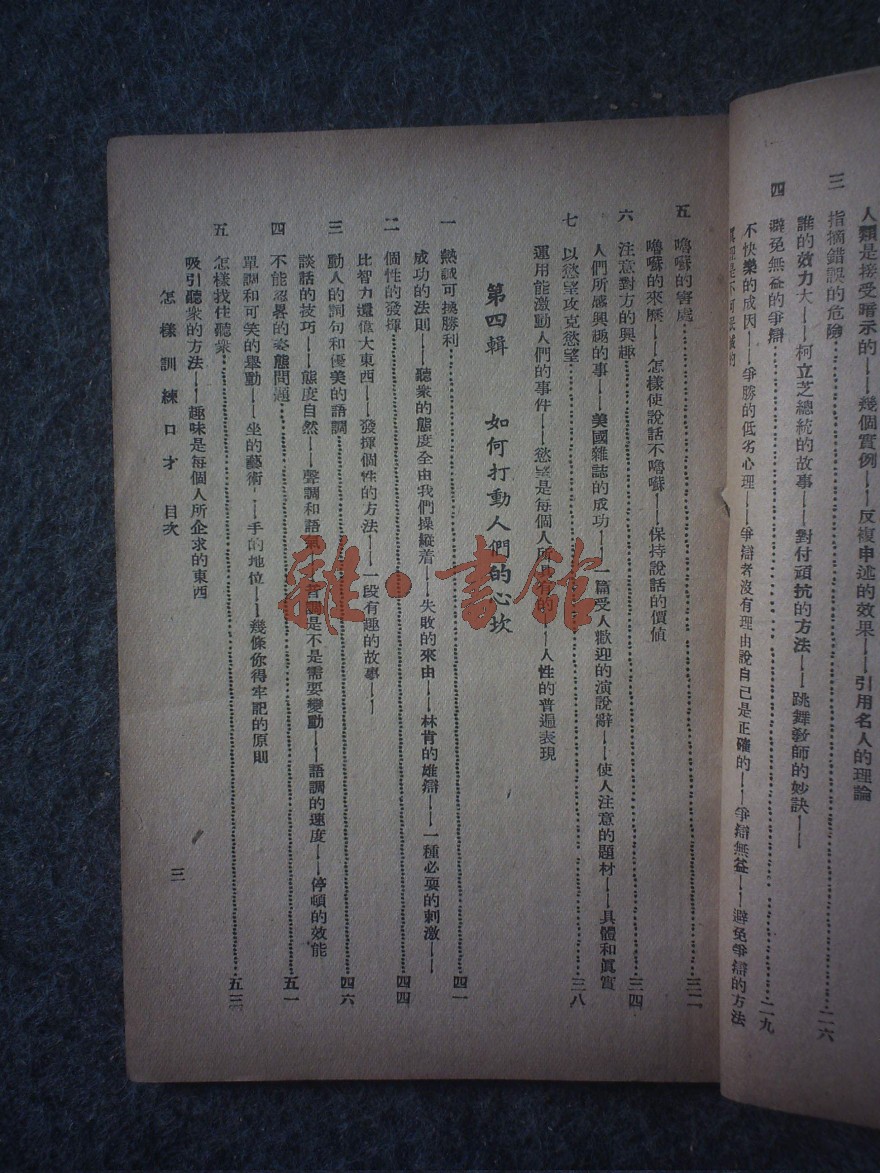 人類是接受暗示的——幾個實例——反複申述的效果——引用名人的理論
三 指摘錯誤的危險……二六
誰的效力大——柯立芝總統的故事——對付頑抗的方法——跳舞教師的妙訣——
四 避免無益的爭辯……二九
不快樂的成因——爭勝的低劣心理——爭辯者沒有理由說自己是正確的——爭辯無益——避免爭辯的方法
五 嚕囌的害處……三二
嚕囌的來歷——怎樣使說話不嚕囌——保持說話的價值
六 注意對方的興趣……三四
人們所感興趣的事——美國雜誌的成功——一篇受人歡迎的演說辭——使人注意的題材——具體和眞實
七 以慾望攻克慾望……三八
運用能激動人們的事件——慾望是每個人所具有的——人性的普遍表現
第四輯 如何打動人們的心坎
一 熱誠可換勝利……四一
成功的法則——聽衆的態度全由我們操縱着——失敗的來由——林肯的雄辯——一種必要的刺激——
二 個性的發揮……四四
比智力還偉大東西——發揮個性的方法——一段有趣的故事——
三 動人的詞句和優美的語調……四六
談話的技巧——態度自然——聲調和語氣——音調是不是需要變動——語調的速度——停頓的效能
四 不能忽畧的姿態問題……五一
單調和可笑的舉動——坐的藝術——手的地位——幾條你得牢記的原則
五 怎樣找住聽衆……五三
吸引聽衆的方法——趣味是每個人所企求的東西
怎樣訓練口才 目次
三
雜·書館